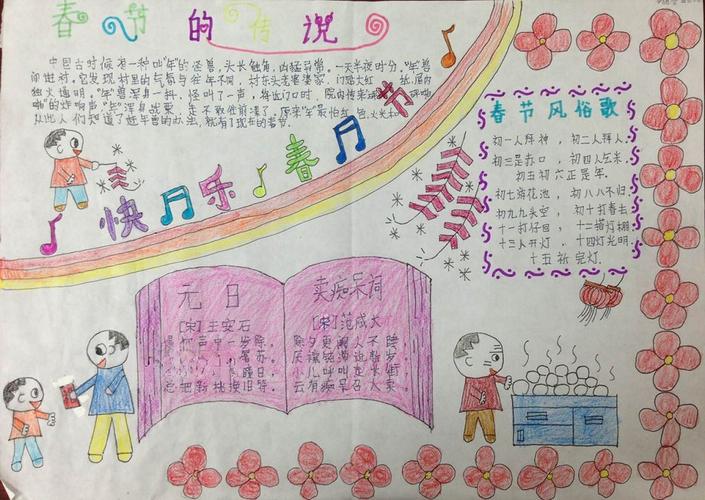 春节的传说
中国古时候有一种叫“年”的怪兽，头长触角，凶猛异常。一天半夜时分，“年”兽
闯进村。它发现村里的气氛与往年不同，村东头老婆婆家，门贴大红 屋内
烛火通明。“年”兽浑身一抖，怪叫了一声。将近门口时，院内传来
啪”的炸响声“年”浑身战栗，再不敢往前凑了，原来“年”最怕红色、火光和
从此人们知道了赶年兽的办法，就有了现在的春节。
快乐春节
春节风俗歌
初一人拜神，初二人拜人，
初三是赤口，初四人乞米，
初五初六正是年。
初七游花池，初八八不归，
初九九头空，初十打春去
十一打仔回，十二搭灯棚，
十三人开灯，十四灯光明，
十五祈完灯。
元日
[宋]王安石
爆竹声中一岁除，
屠苏。
曈日，
总把新桃换旧符。
卖痴呆词
[宋]范成大
除夕更阑人不睡
厌禳钝滞迎新岁，
小儿呼叫走长街，
云有痴呆召人卖。